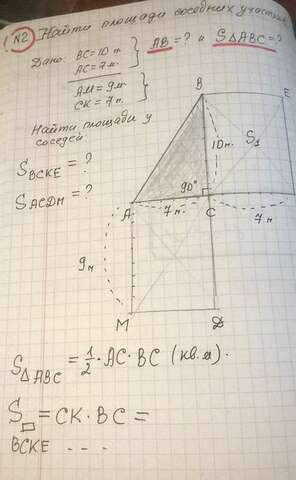 №2 Найти площади соседних участков
Дано: BC=10м.
AC=7м.
AM=9м
CK=7м.
AB=? и S△ABC=?
Найти площади у
соседей:
S BCKE = ?
S ACDM = ?
B
E
10м.
S₁
90°
A
7м.
C
7м.
9м
M
D
S△ABC = 1/2 · AC · BC (кв.м).
S□ = CK · BC =
BCKE - - -